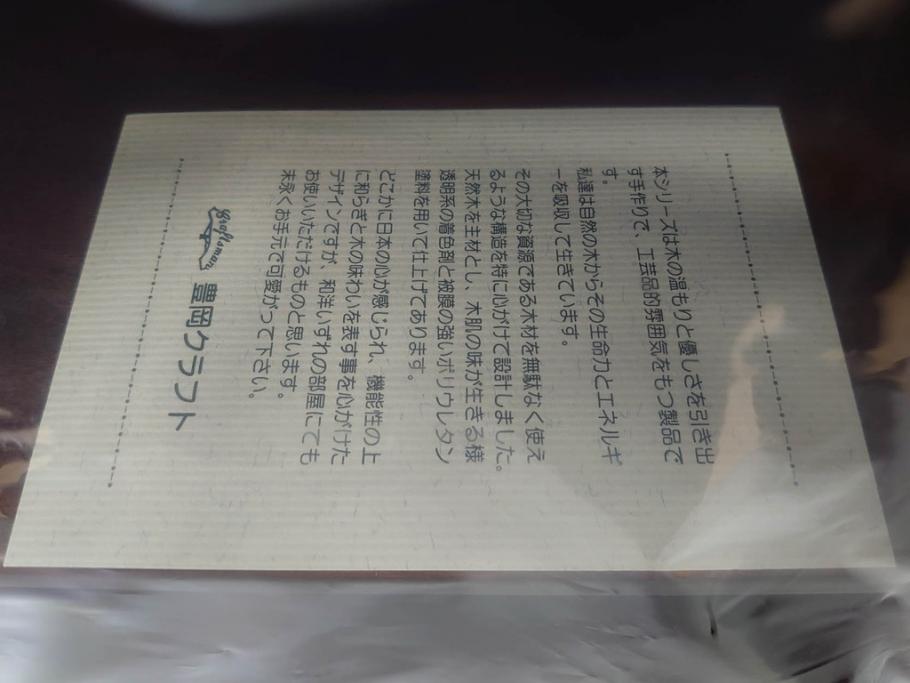 本シリーズは木の温もりと優しさを引き出
す手作りで、工芸品的雰囲気をもつ製品で
す。
私達は自然の木からその生命力とエネルギ
ーを吸収して生きています。
その大切な資源である木材を無駄なく使え
るような構造を特に心がけて設計しました。
天然木を主材とし、木肌の味が生きる様
透明系の着色剤と被膜の強いポリウレタン
塗料を用いて仕上げてあります。
どこかに日本の心が感じられ、機能性の上
に和らぎと木の味わいを表す事を心がけた
デザインですが、和洋いずれの部屋にても
お使いいただけるものと思います。
末永くお手元で可愛がって下さい。
craftsman 豊岡クラフト